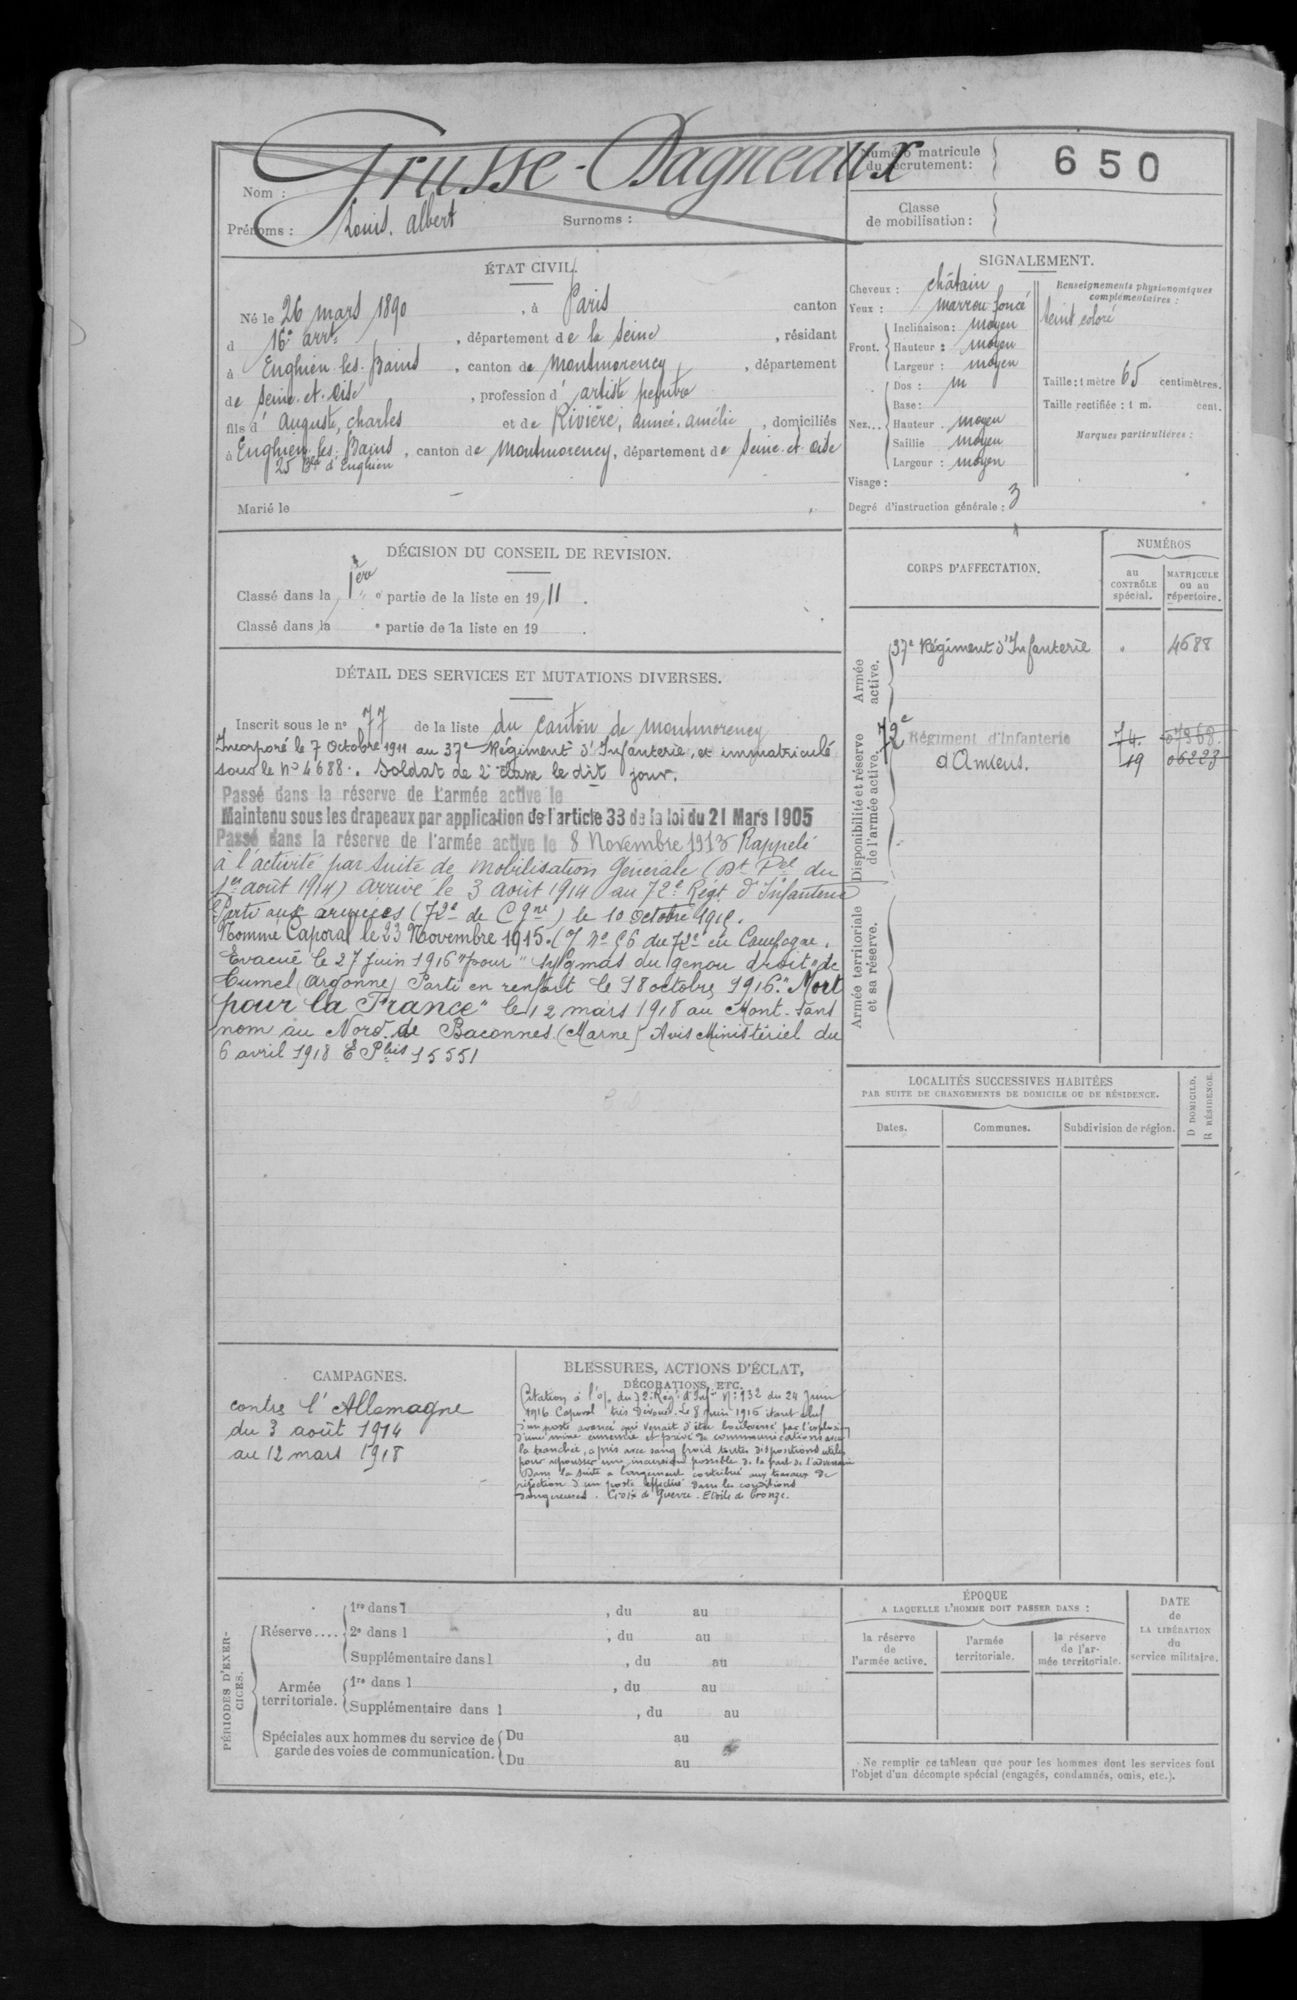 Nom : Grusse-Dagneaux
Prénoms : Louis, Albert Surnoms :
Numéro matricule du recrutement : 650
Classe de mobilisation :
ÉTAT CIVIL.
Né le 26 mars 1890, à Paris canton
d 16e arrt, département de la Seine, résidant
à Enghien-les-Bains, canton de Montmorency, département
de Seine-et-Oise, profession d'artiste peintre
fils d'Auguste, Charles et de Rivière, Aimée, Amélie, domiciliés
à Enghien-les-Bains, canton de Montmorency, département de Seine-et-Oise
25 Bd d'Enghien
Marié le
SIGNALEMENT.
Cheveux : châtain
Yeux : marron foncé
Front. Inclinaison : moyen
Hauteur : moyen
Largeur : moyen
Nez... Dos : m
Base :
Hauteur : moyen
Saillie moyen
Largeur : moyen
Visage :
Degré d'instruction générale : 3
Renseignements physionomiques complémentaires :
teint coloré
Taille : 1 mètre 65 centimètres.
Taille rectifiée : 1 m. cent.
Marques particulières :
DÉCISION DU CONSEIL DE REVISION.
Classé dans la 1ère partie de la liste en 1911.
Classé dans la e partie de la liste en 19 .
DÉTAIL DES SERVICES ET MUTATIONS DIVERSES.
Inscrit sous le no 77 de la liste du canton de Montmorency
Incorporé le 7 Octobre 1911 au 37e Régiment d'Infanterie, et immatriculé
sous le No 4688. Soldat de 2e classe le dit jour.
Passé dans la réserve de l'armée active le
Maintenu sous les drapeaux par application de l'article 33 de la loi du 21 Mars 1905
Passé dans la réserve de l'armée active le 8 Novembre 1913 Rappelé
à l'activité par suite de mobilisation Générale (Dt Pel du
1er août 1914) arrivé le 3 août 1914 au 72e Régt d'Infanterie
Parti aux armées (72e de Cgne) le 10 octobre 1915.
Nommé Caporal le 23 Novembre 1915. du 72e en Campagne.
Evacué le 27 juin 1916 pour du genou droit" de
(Argonne) Parti en renfort le 18 octobre 1916. "Mort
pour la France" le 12 mars 1918 au Mont-sans
nom au Nord de Baconnes (Marne) Avis Ministériel du
6 avril 1918 15551
CORPS D'AFFECTATION.
NUMÉROS
au CONTRÔLE spécial.
MATRICULE ou au répertoire.
Armée active.
37e Régiment d'Infanterie " 4688
Disponibilité et réserve de l'armée active.
72e Régiment d'Infanterie 74. 07368.
d'Amiens. 19 06223
Armée territoriale et sa réserve.
LOCALITÉS SUCCESSIVES HABITÉES
PAR SUITE DE CHANGEMENTS DE DOMICILE OU DE RÉSIDENCE.
Dates. Communes. Subdivision de région. D DOMICILE. R RÉSIDENCE.
CAMPAGNES.
contre l'Allemagne
du 3 août 1914
au 12 mars 1918
BLESSURES, ACTIONS D'ÉCLAT,
DÉCORATIONS, ETC.
Citation à l'o/. du 72e Régt d'Infie No 132 du 24 Juin
1916 Caporal très dévoué. Le 8 juin 1916 étant chef
d'un poste avancé qui venait d'être bouleversé par l'explosion
d'une mine ennemie et privé de communications avec
la tranchée, a pris avec sang froid toutes dispositions utiles
pour repousser une incursion possible de la part de l'adversaire
Dans la suite a largement contribué aux travaux de
réfection d'un poste effectué dans les conditions
dangereuses. Croix de Guerre. Etoile de bronze.
PÉRIODES D'EXERCICES.
Réserve.... 1re dans l , du au
2e dans l , du au
Supplémentaire dans l , du au
Armée territoriale. 1re dans l , du au
Supplémentaire dans l , du au
Spéciales aux hommes du service de garde des voies de communication. Du au
Du au
ÉPOQUE
A LAQUELLE L'HOMME DOIT PASSER DANS :
la réserve de l'armée active.
l'armée territoriale.
la réserve de l'armée territoriale.
DATE de LA LIBÉRATION du service militaire.
Ne remplir ce tableau que pour les hommes dont les services font
l'objet d'un décompte spécial (engagés, condamnés, omis, etc.).